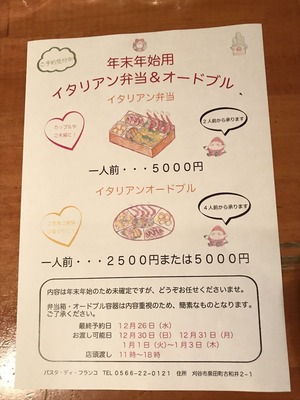 ご予約受付中
年末年始用
イタリアン弁当&オードブル
イタリアン弁当
カップルや
ご夫婦に!
2人前から承ります
一人前・・・5000円
イタリアンオードブル
4人前から承ります
一人前・・・2500円または5000円
内容は年末年始のため未確定ですが、どうぞお任せくださいませ。
弁当箱・オードブル容器は内容重視のため、簡素なものとなります。
ご了承ください。
最終予約日 12月26日(水)
お渡し可能日 12月30日(日) 12月31日(月)
1月1日(火)~1月3日(木)
店頭渡し 11時~18時
パスタ・ディ・フランコ TEL 0566-22-0121 住所 刈谷市泉田町古和井2-1